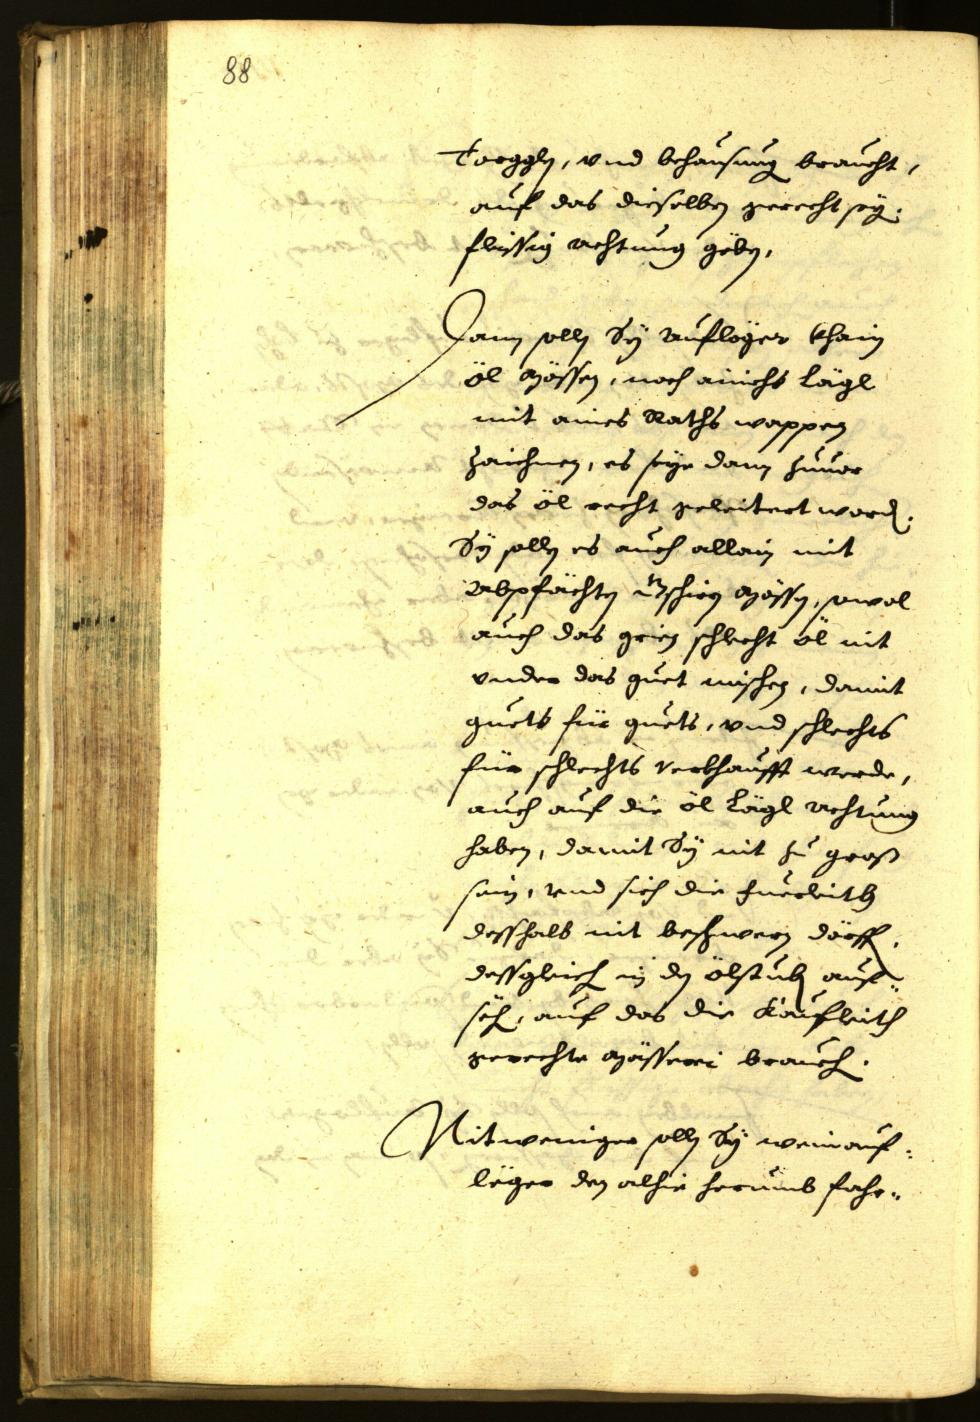 88
torggln, vnd behausung braucht,
auf das dieselben gerecht sey:
fleissig achtung geben.
Dann solln Sy Aufleger khain
öl mössen, noch ainichs Lägl
mit aines Raths wappen
zaichnen, es seye dann zuuor
das öl recht geleitert word.
Sy solln es auch allain mit
abpfächtn mössn, sowol
auch das grien schlecht öl nit
vnder das guet mischen, damit
guets für guets, vnd schlechts
für schlechts verkhaufft werde,
auch auf die öl Lägl achtung
haben, damit Sy nit zu groß
sein, vnd sich die fuerleith
desshalb nit beschwern dörff,
dessgleich in dn ölstubn auf=
seh, auf das die Kaufleith
gerechte mässerei brauch.
Nit weniger solln Sy weinauf=
leger den alhie herumb fahr=